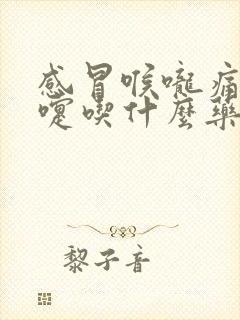 感冒喉嚨痛
嚏喫什麼藥
黎子音